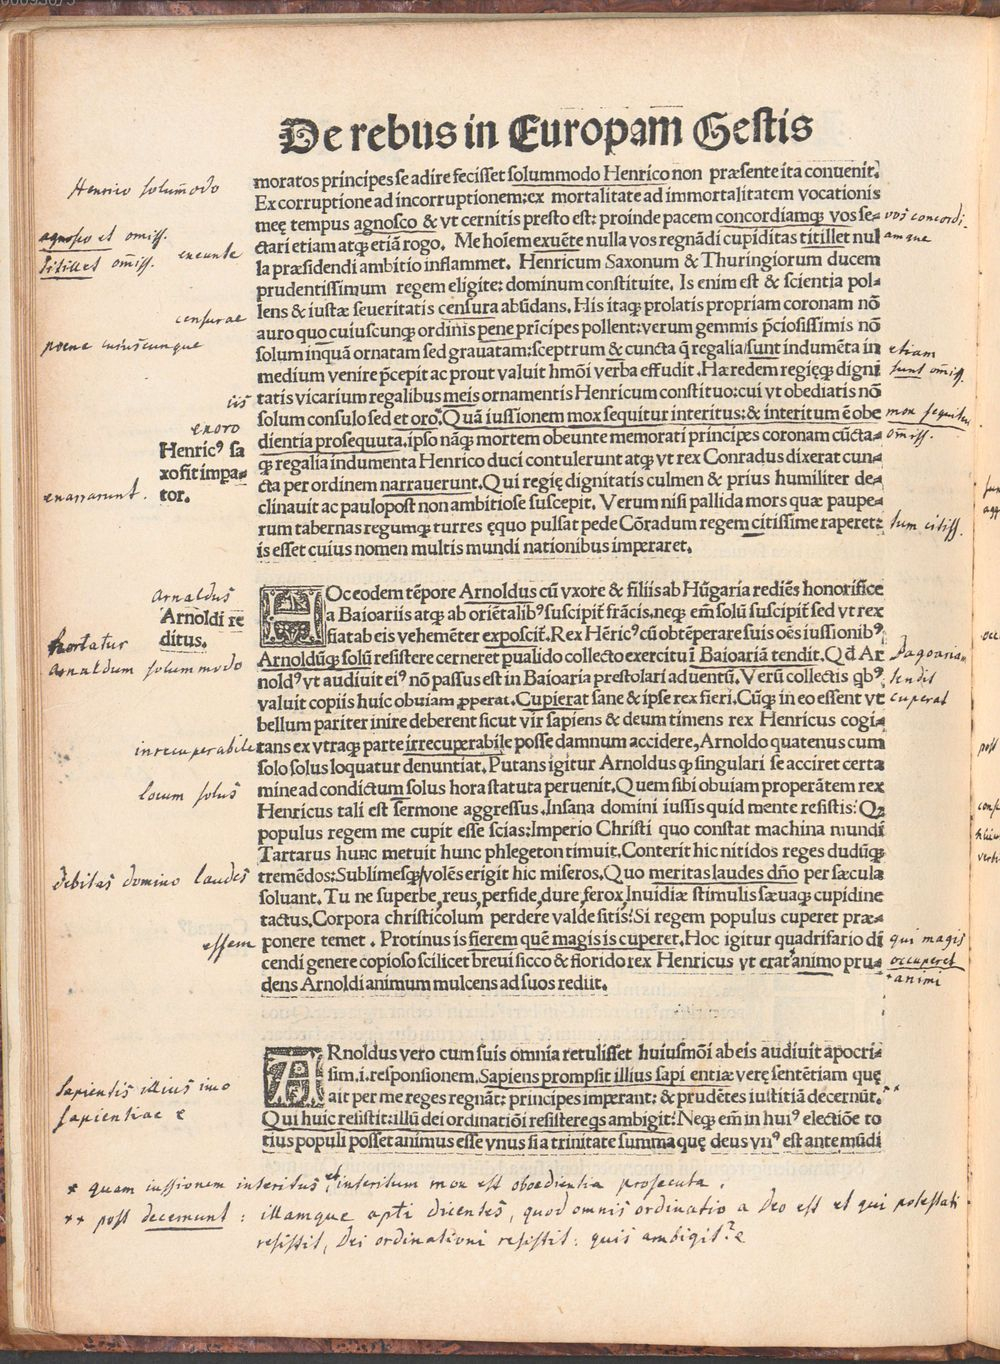 De rebus in Europam Gestis
moratos principes se adire fecisset solummodo Henrico non præsente ita conuenit.
Ex corruptione ad incorruptionem: ex mortalitate ad immortalitatem vocationis
meę tempus agnosco & vt cernitis presto est: proinde pacem concordiamqꝫ vos se⸗
ctari etiam atqꝫ etiā rogo. Me hoīem exuēte nulla vos regnādi cupiditas titillet nul
la præsidendi ambitio inflammet. Henricum Saxonum & Thuringiorum ducem
prudentissimum regem eligite: dominum constituite. Is enim est & scientia pol⸗
lens & iustæ seueritatis censura abūdans. His itaqꝫ prolatis propriam coronam nō
auro quo cuiuscunqꝫ ordinis pene prīcipes pollent: verum gemmis p̄ciosissimis nō
solum inquā ornatam sed grauatam: sceptrum & cuncta q̄ regalia/sunt indumēta in
medium venire p̄cepit ac prout valuit hmōi verba effudit. Hæredem regięqꝫ digni
tatis vicarium regalibus meis ornamentis Henricum constituo: cui vt obediatis nō
solum consulo sed et oro.* Quā iussionem mox sequitur interitus: & interitum ē obe
dientia prosequuta. ipso nāqꝫ mortem obeunte memorati principes coronam cūcta⸗
qꝫ regalia indumenta Henrico duci contulerunt atqꝫ vt rex Conradus dixerat cun⸗
cta per ordinem narrauerunt. Qui regię dignitatis culmen & prius humiliter de⸗
clinauit ac paulopost non ambitiose suscepit. Verum nisi pallida mors quæ paupe⸗
rum tabernas regumqꝫ turres ęquo pulsat pede Cōradum regem citissime raperet:
is esset cuius nomen multis mundi nationibus imperaret.
HOc eodem tēpore Arnoldus cū vxote & filiis ab Hūgaria rediēs honorifice
a Baioariis atqꝫ ab oriētalibꝰ suscipit̄ frācis. neqꝫ em̄ solū suscipit̄ sed vt rex
fiat ab eis vehemēter exposcit̄. Rex Hēricꝰ cū obtēperare suis oēs iussionibꝰ
Arnoldūqꝫ solū resistere cerneret pualido collecto exercitu ī Baioariā tendit. Qd̄ Ar
noldꝰ vt audiuit eiꝰ nō passus est in Baioaria prestolari aduentū. Verū collectis qbꝰ
valuit copiis huic obuiam ꝓperat. Cupierat sane & ipse rex fieri. Cūqꝫ in eo essent vt
bellum pariter inire deberent sicut vir sapiens & deum timens rex Henricus cogi⸗
tans ex vtraqꝫ parte irrecuperabile posse damnum accidere, Arnoldo quatenus cum
solo solus loquatur denuntiat. Putans igitur Arnoldus qꝫ singulari se acciret certa
mine ad condictum solus hora statuta peruenit. Quem sibi obuiam properātem rex
Henricus tali est sermone aggressus. Insana domini iussis quid mente resistis: Qꝫ
populus regem me cupit esse scias: Imperio Christi quo constat machina mundi
Tartarus hunc metuit hunc phlegeton timuit. Conterit hic nitidos reges dudūqꝫ
tremēdos: Sublimesqꝫ/volēs erigit hic miseros. Quo meritas laudes dn̄o per sæcula
soluant. Tu ne superbe, reus, perfide, dure, ferox, Inuidiæ stimulis sæuaqꝫ cupidine
tactus. Corpora christicolum perdere valde sitis: Si regem populus cuperet præ⸗
ponere temet. Protinus is fierem quē magis is cuperet. Hoc igitur quadrifario di
cendi genere copioso scilicet breui sicco & florido rex Henricus vt erat animo pru⸗
dens Arnoldi animum mulcens ad suos rediit.
ARnoldus vero cum suis omnia retulisset huiusmōi ab eis audiuit apocri⸗
sim. i. responsionem. Sapiens prompsit illius sapientiæ verę sentētiam quę
ait per me reges regnāt: principes imperant: & prudētes iustitiā decernūt.**
Qui huic resistit: illū dei ordinatiōi resistere qs ambigit: Neqꝫ em̄ in huiꝰ electiōe to
tius populi posset animus esse vnus si a trinitate summa quę deus vnꝰ est ante mūdi
Henrico solum̄odo
agnosco et omiss.
titillet om̄iss.
exeunte
censurae
poene cuiuscunque
iis
exoro
Henricꝰ sa
xo fit impa⸗
tor.
enarrarunt.
Arnaldus
Arnoldi re
ditus.
hortatur
Arnaldum solummodo
inrecuperabile
locum solus
debitas domino laudes
essem
Sapientis illius imo
sapientiae
vos concordi⸗
amque
etiam
sunt om̄iss.
mox sequitur
om̄iss.
tum citiss.
Bagoariam
tendit
cuperat
qui magis
occuperet
* animi
* quam iussionem interitus et interitum mox est oboedientia prosecuta.
** post decernunt: illamque apti dicentes, quod omnis ordinatio a Deo est et qui potestati
resistit, Dei ordinationi resistit: quis ambigit?